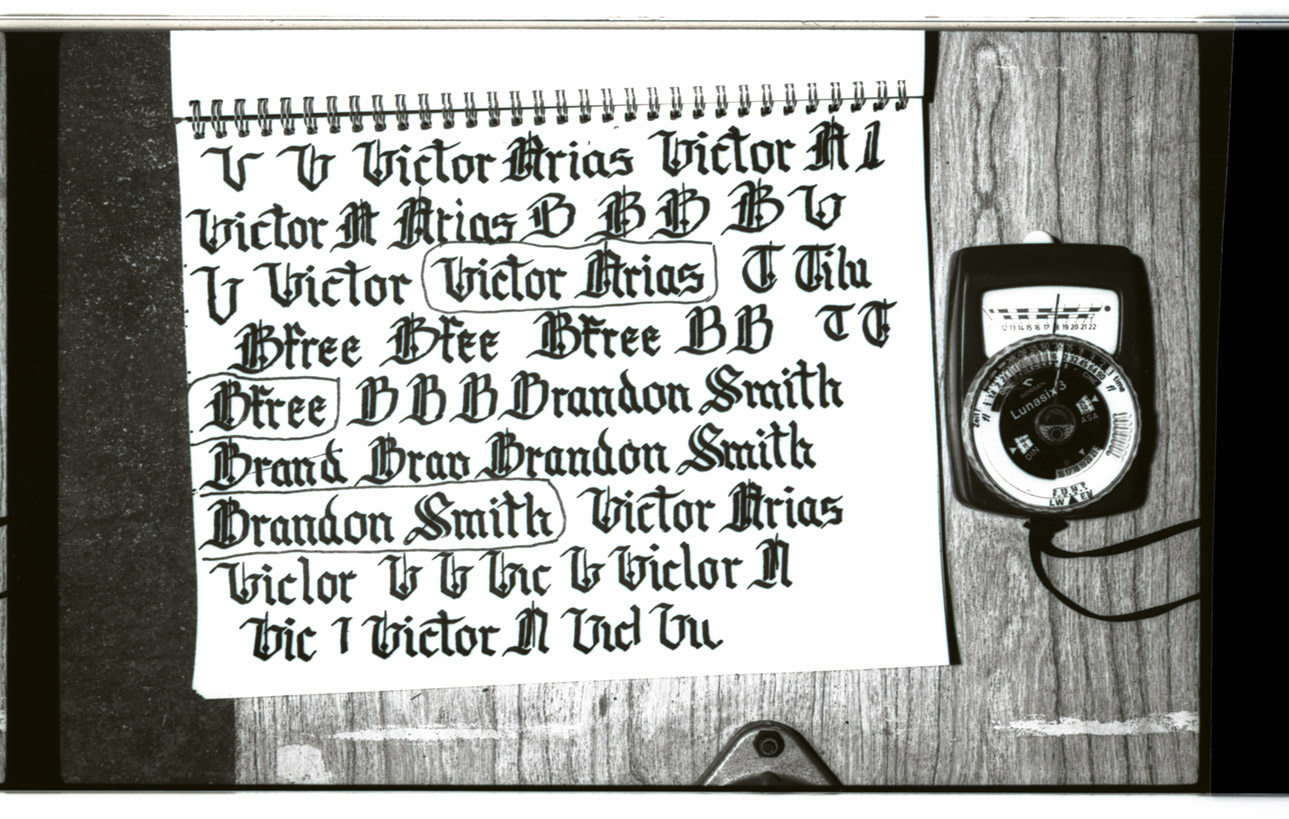 V V Victor Arias Victor A
Victor A Arias B B B B V
V Victor Victor Arias T Tilu
Bfree Bfee Bfree B B T T
Bfree B B B Brandon Smith
Brand Bran Brandon Smith
Brandon Smith Victor Arias
Viclor V V Vic V Viclor A
Vic Victor A Vicl
12 13 14 15 16 17 18 19 20 21 22
Lunasix 3
ASA
DIN
LW EV